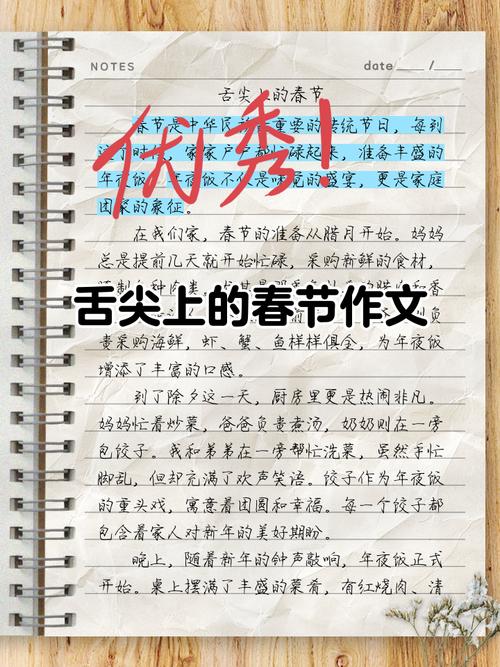 NOTES date / 
舌尖上的春节
优秀！
春节是中华重要的传统节日，每到
家家户户都忙碌起来，准备丰盛的
年夜饭 年夜饭不仅是味觉的盛宴，更是家庭
团聚的象征。
在我们家，春节的准备从腊月开始。妈妈
总是提前几天就开始忙碌，采购新鲜的食材，
舌尖上的春节作文
责采购海鲜，虾、蟹、鱼样样俱全，为年夜饭
增添了丰富的口感。
到了除夕这一天，厨房里更是热闹非凡。
妈妈忙着炒菜，爸爸负责煮汤，奶奶则在一旁
包饺子。我和弟弟在一旁帮忙洗菜，虽然手忙
脚乱，但却充满了欢声笑语。饺子作为年夜饭
的重头戏，寓意着团圆和幸福。每一个饺子都
包含着家人对新年的美好期盼。
晚上，随着新年的钟声敲响，年夜饭正式
开始。桌上摆满了丰盛的菜肴，有红烧肉、清